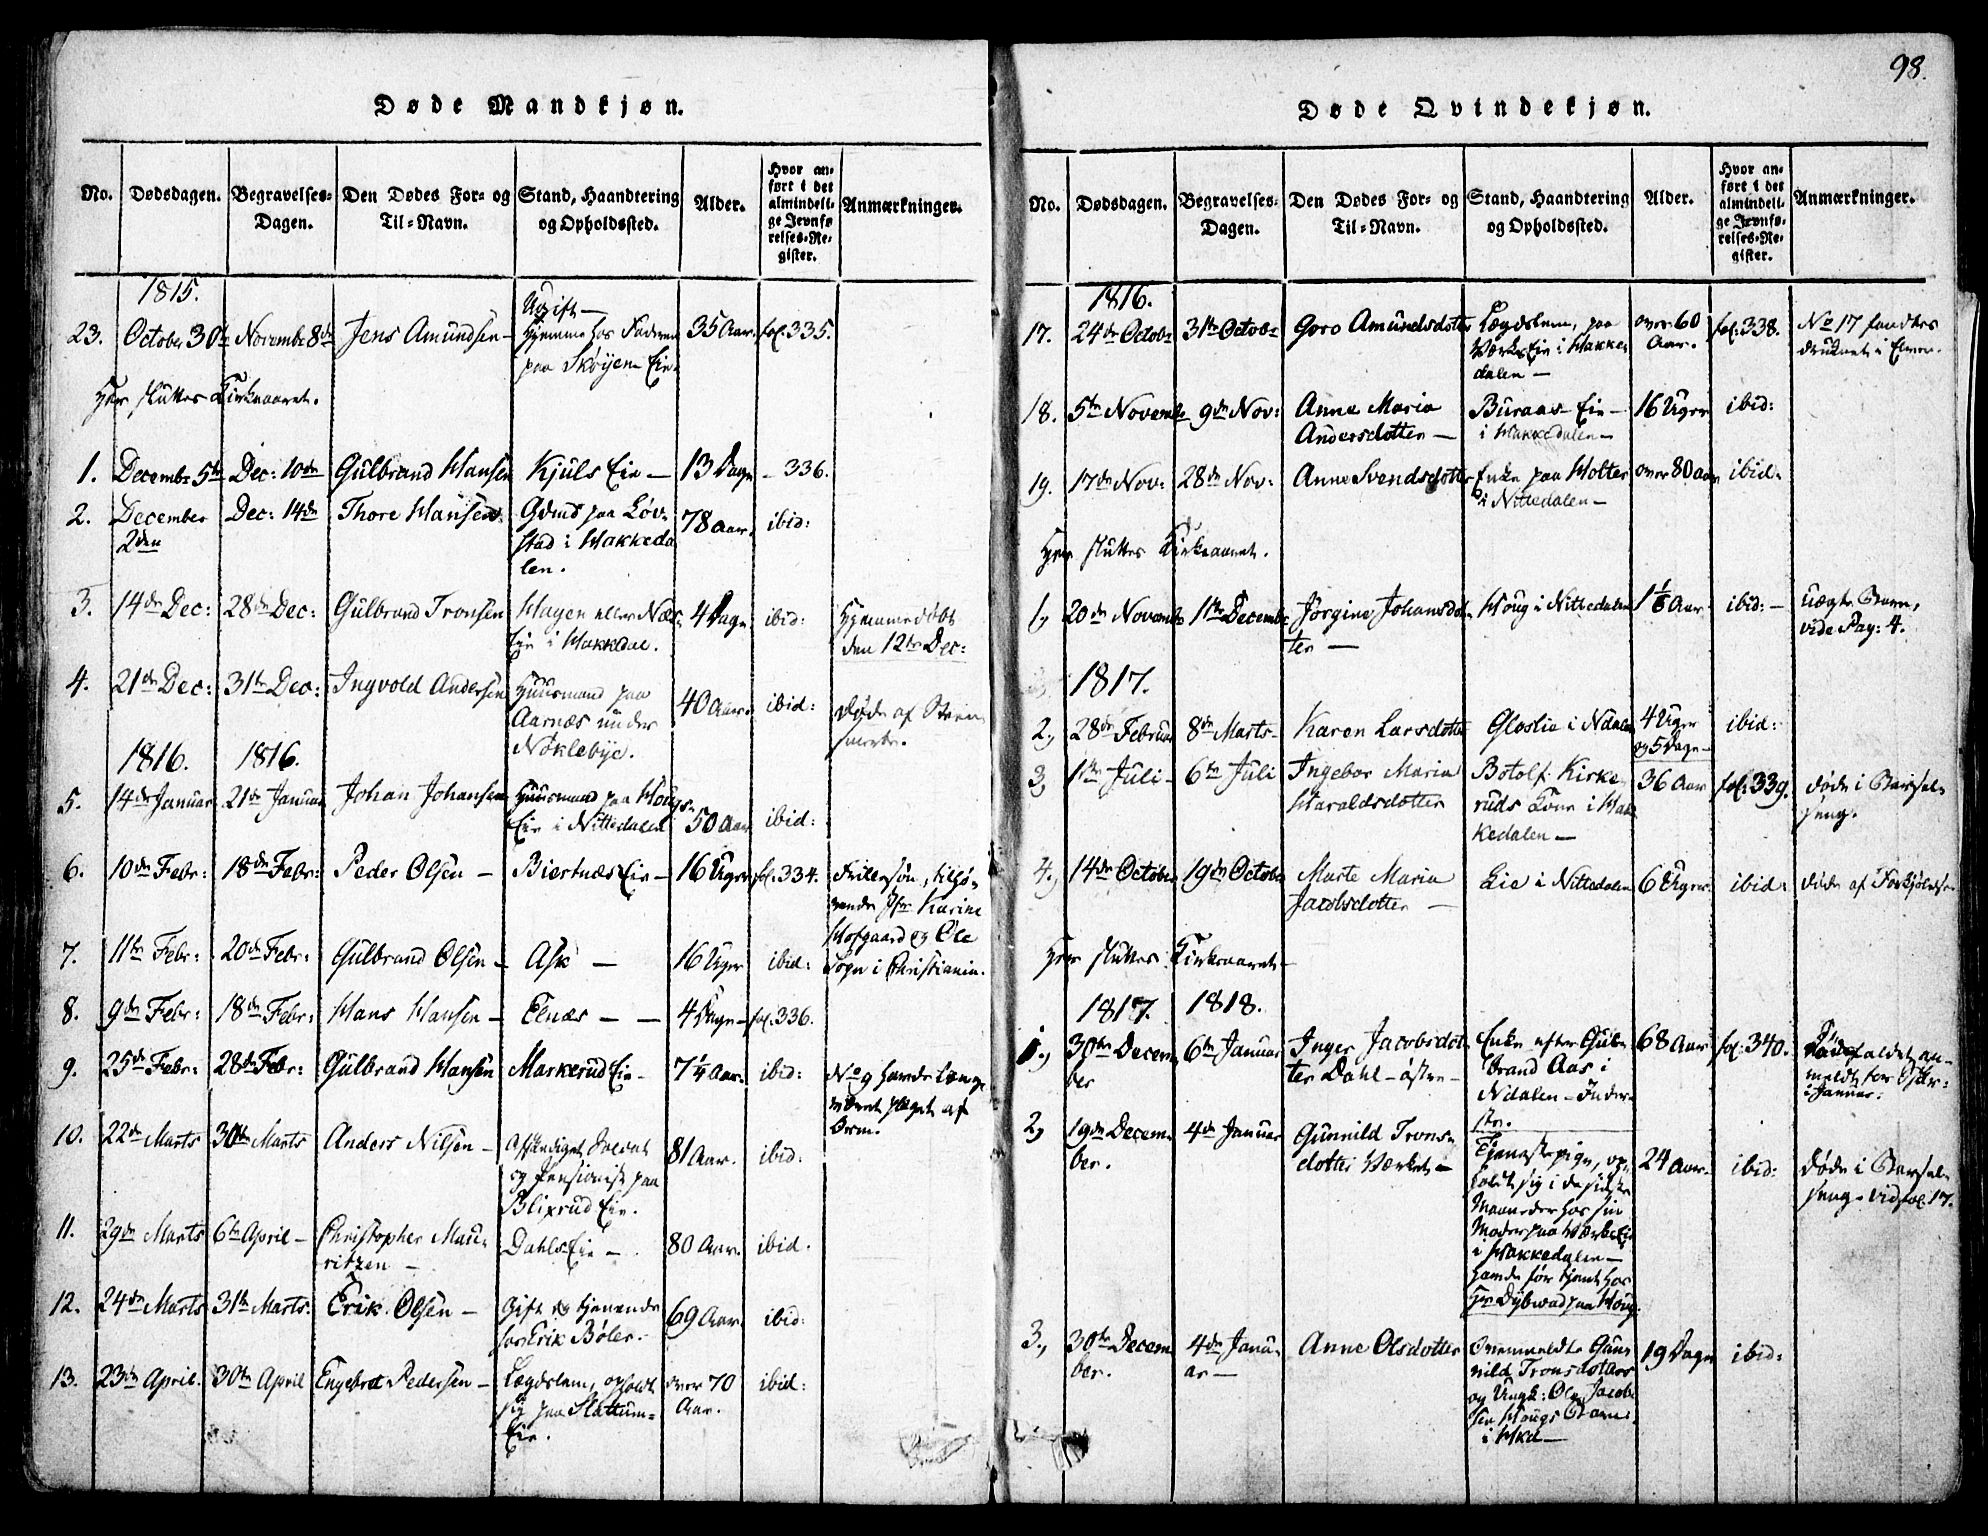 98.
Døde Mandkjøn.
No. Dødsdagen. Begravelses-Dagen. Den Dødes For- og Til-Navn. Stand, Haandtering og Opholdssted. Alder. Hvor anført i det almindelige Jevnførelses-Register. Anmærkninger.
1815.
23. October 30te Novembr 8de Jens Amundsen – Ugift – Hjemme hos Faderen paa Skøyen Eie. 35 Aar. fol. 335.
Her sluttes Kirkeaaret.
1. Decembr 5te Dec: 10de Gulbrand Hansen Kjuls Eie – 13 Dage – 336.
2. December 2den Dec: 14de Thore Hansen Gdmd paa Løvstad i Hakkedalen. 78 Aar. ibid:
3. 14de Dec: 28de Dec: Gulbrand Tronsen Hagen eller Næs Eie i Hakkedal. 4 Dage ibid: Hjemmedøbt den 12te Dec:
4. 21de Dec: 31te Dec: Ingvold Andersen Huusmand paa Aarnæs under Nøklebye. 40 Aar. ibid: Døde af
1816. 1816.
5. 14de Januar 21de Januar Johan Johansen Huusmand paa Hougs Eie i Nittedalen 50 Aar ibid:
6. 10de Febr: 18de Febr: Peder Olsen – Biertnæs Eie – 16 Uger fol. 334. Karine Hofgaard og Ole i Christiania.
7. 11te Febr: 20de Febr: Gulbrand Olsen – Ask – 16 Uger ibid:
8. 9de Febr: 18de Febr: Hans Hansen – Elnæs – – 4 Dage – fol. 336.
9. 25de Febr: 28de Febr: Gulbrand Hansen Markerud Eie – 7 1/4 Aar. ibid: No 9 havde længe været plaget af Orm.
10. 22de Marts 30te Marts Anders Nilsen – Afskediget Soldat og Pensionist paa Blixrud Eie. 81 Aar. ibid:
11. 29de Marts 6te April – Christopher Mauritzen – Dahls Eie – 80 Aar. ibid.
12. 24de Marts 31te Marts: Erik Olsen – Gift og tjenende hos Erik Bøler. 69 Aar. ibid:
13. 23de April. 30te April Engebret Pedersen – Lægdslem, opholdt sig paa Slattum-Eie. over 70 Aar. ibid:
Døde Qvindekjøn.
No. Dødsdagen. Begravelses-Dagen. Den Dødes For- og Til-Navn. Stand, Haandtering og Opholdssted. Alder. Hvor anført i det almindelige Jevnførelses-Register. Anmærkninger.
1816.
17. 24de Octobr 31te Octobr Goro Amundsdotter Lægdslem, paa Værks Eie i Hakkedalen – over 60 Aar. fol. 338. No 17 fandtes druknet i Elven.
18. 5te Novembr 9de Nov: Anne Maria Andersdotter – Buraas Eie – i Hakkedalen – 16 Uger ibid:
19. 17de Nov: 28de Nov: Anne Svendsdotter Enke paa Holter i Nittedalen – over 80 Aar ibid:
Her sluttes Kirkeaaret.
1, 20de Novembr 1te Decembr Jørgine Johansdotter – Houg i Nittedalen 1 1/8 Aar ibid: – uægte Barn, vide Pag: 4.
1817.
2, 28de Februar 8de Marts – Karen Larsdotter Gloslie i Ndalen 4 Uger og 5 Dage – ibid:
3, 1te Juli – 6te Juli Ingebor Maria Haraldsdotter Botolf Kirkeruds Kone i Hakkedalen – 36 Aar fol. 339. døde i Barselseng.
4. 14de October 19de October Marte Maria Jacobsdotter – Lie i Nittedalen 6 Uger. ibid: døde af Forkjølelse
Her sluttes Kirkeaaret –
1817. 1818.
1., 30te December 6te Januar Inger Jacobsdotter Dahl – østre – Enke efter Gulbrand Aas i Nidalen – 68 Aar fol. 340. Dødsfaldet anmeldt for i Januar.
2, 19de December. 4de Januar Gunnild Tronsdotter Værket – Tjenestepige, opholdt sig i de sidste Maaneder hos sin Moder paa Værks Eie i Hakkedalen – havde før tjent hos Hr Dybwad paa Houg. 24 Aar. ibid: døde i Barselseng – vid fol. 17.
3., 30te December. 4de Januar – Anne Olsdotter Ovenmeldte Gunnild Tronsdotters og Ungk: Ole Jacobsen Hougs Barn i Hkd – 19 Dage ibid: